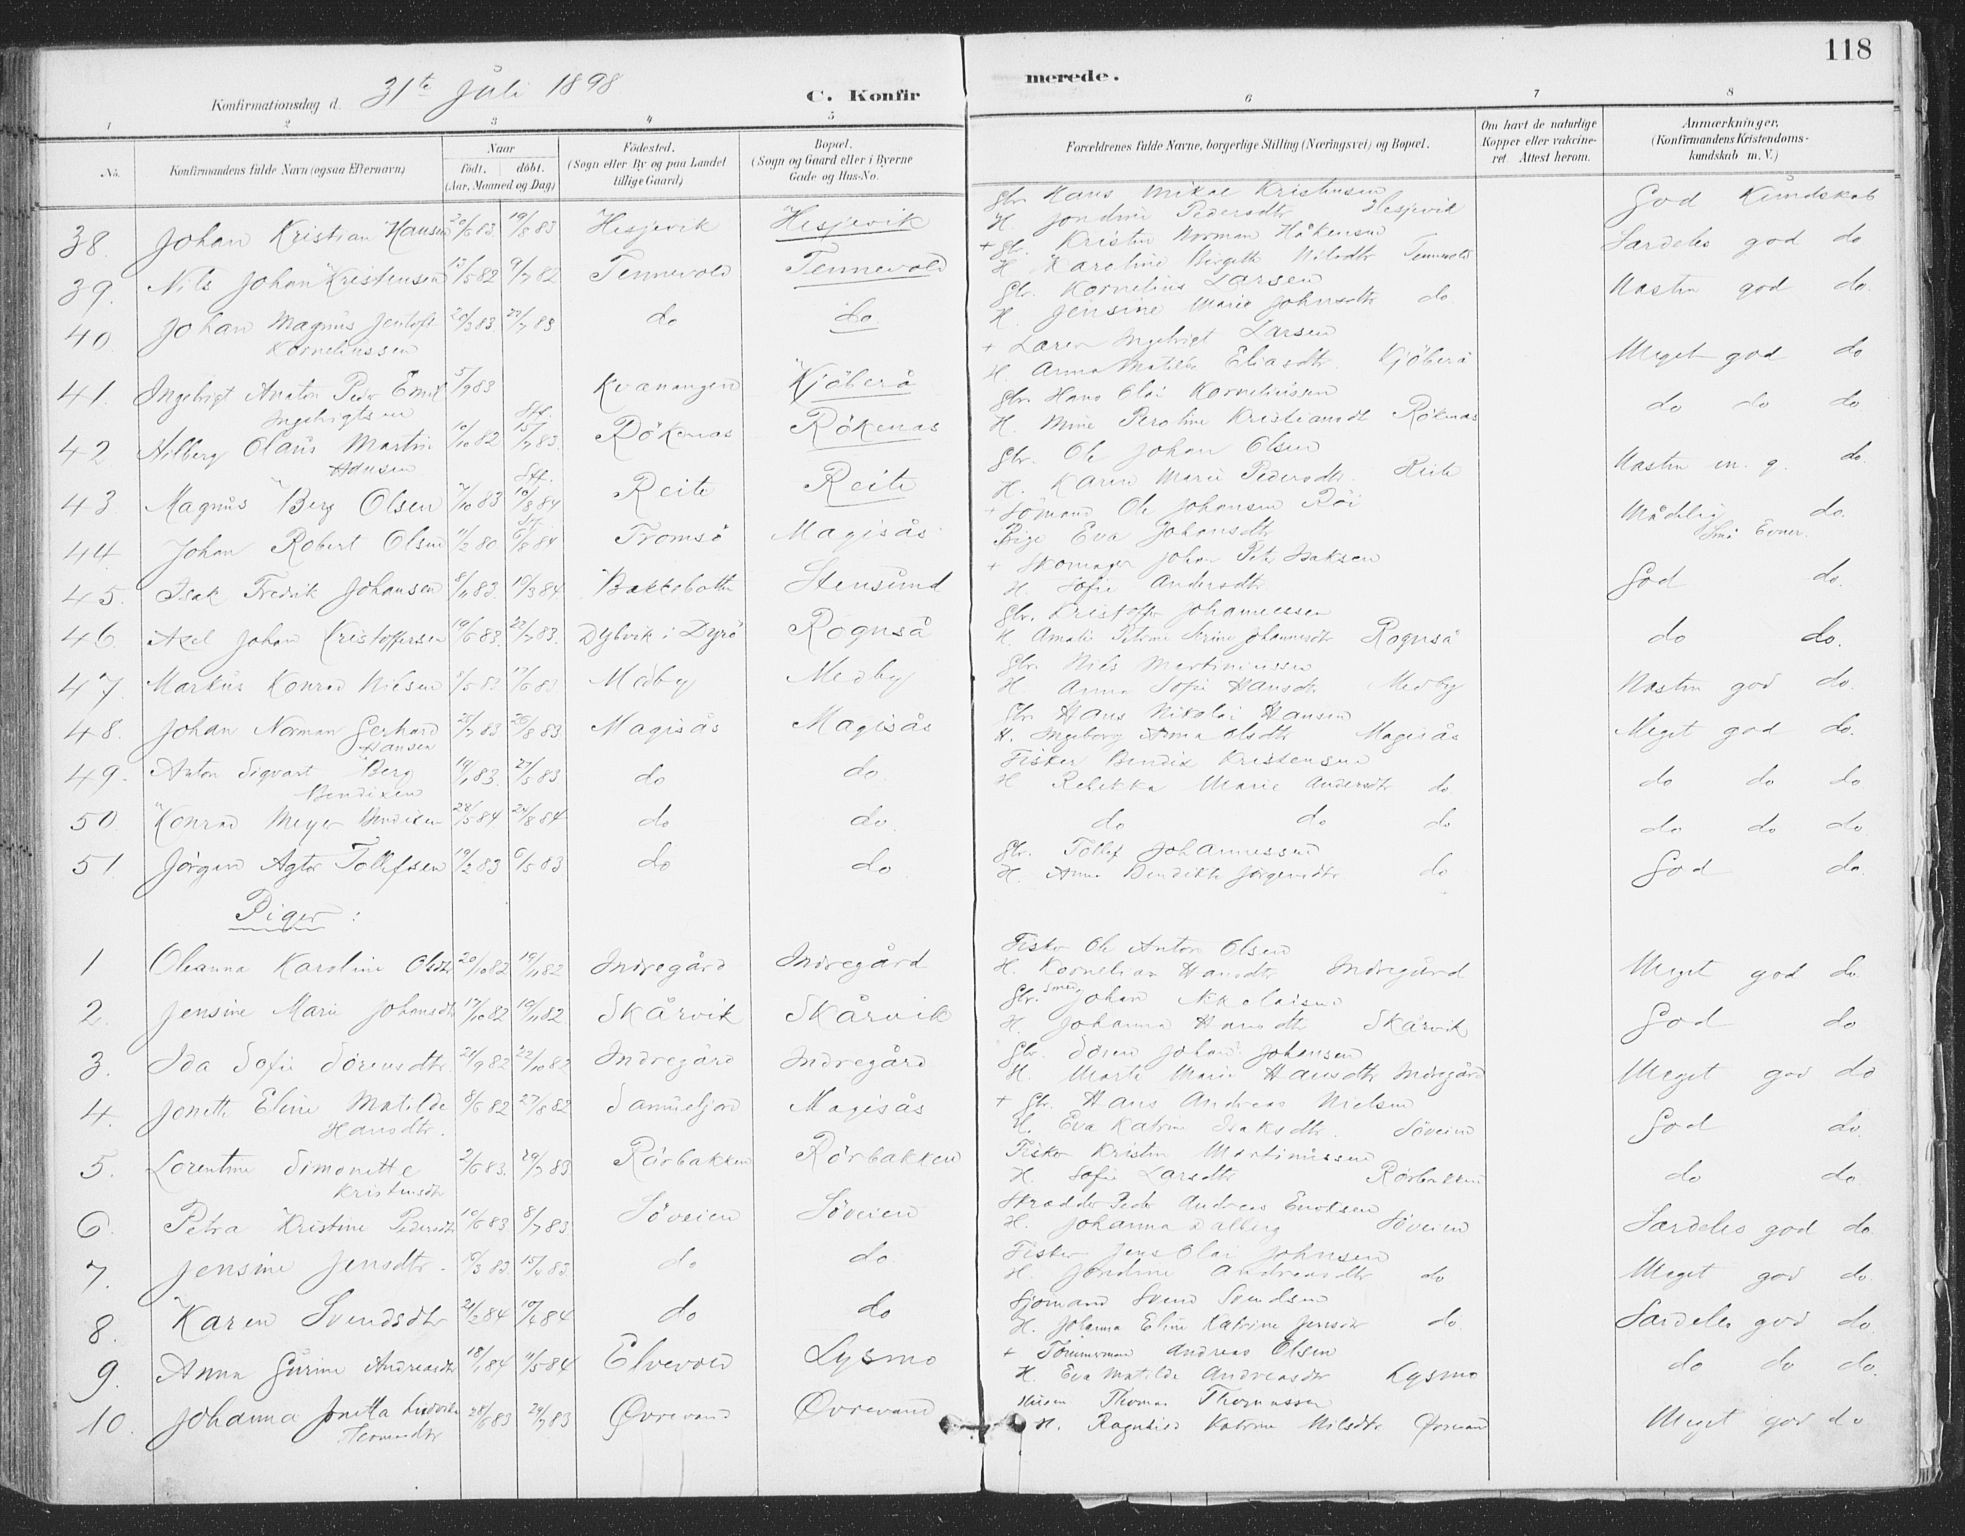 118
Konfirmationsdag d. 31te Juli 1898
C. Konfirmerede.
1 2 3 4 5 6 7 8
No. Konfirmandens fulde Navn (ogsaa Efternavn) Naar født. døbt. (Aar, Maaned og Dag) Fødested. (Sogn eller By og paa Landet tillige Gaard) Bopæl. (Sogn og Gaard eller i Byerne Gade og Hus-No. Forældrenes fulde Navne, borgerlige Stilling (Næringsvei) og Bopæl. Om havt de naturlige Kopper eller vakcineret. Attest herom. Anmærkninger. (Konfirmandens Kristendomskundskab m. V.)
38. Johan Kristian Hansen 20/6 83 19/8 83 Hesjevik Hesjevik Gbr. Hans Mikal Kristensen H. Jondine Pedersdtr Hesjevik God Kundskab
39. Nils Johan Kristensen 13/5 82 9/7 82 Tennevold Tennevold + Gbr. Kristen Norman Håkensen H. Karoline Birgitte Nilsdtr Tennevold Særdeles god do
40. Johan Magnus Jentoft Korneliussen 20/3 83 do do Gbr. Kornelius Larsen H. Jensine Marie Johnsdtr do Næsten god do.
41. Ingebrigt Anton Peder Emil Ingebrigtsen 5/9 83 Kvænangen Kjöberå + Ingebrigt Larsen H. Anna Matilde Eliasdtr Kjöberå Meget god do
42 Hilberg Olaus Martin Hansen 10/10 82 15/7 83. Rökenas Rökenas Gbr. Hans Olai Korneliussen H. Mine Peroline Kristiansdt Rökenas do do do
43. Magnus Berg Olsen 7/10 83 10/8 84 Reite Reite Gbr. Ole Johan Olsen H. Karen Marie Pedersdtr Reite Næsten m. g. do.
44. Johan Robert Olsen 11/2 80 6/8 84 Tromsö Magisås + Sömand Ole Johansen Röi Pige Eva Johansdtr Mådelig do. Små Evner.
45. Isak Fredrik Johansen 8/11 83. 19/3 84 Bakkebotn Stensund + Skomager Johan Petr. Isaksen H. Sofie Andersdtr. God do.
46. Axel Johan Kristoffersen 19/6 83. 22/7 83. Dybvik i Dyrö Rognså Gbr. Kristoffer Johannessen H. Amalie Petrine Johannesdtr Rognså do do.
47. Markus Konrad Nielsen 3/5 83 17/6 83. Medby Medby Gbr. Nils Martinussen H. Anna Sofie Hansdtr Medby Næsten god do.
48. Johan Norman Gerhard Hansen 21/7 83 26/8 83 Magisås Magisås Gbr Hans Nikolai Hansen H. Ingeborg Anna Olsdtr Magisås Meget god do.
49. Anton Sigvart Berg Bendixen 14/1 83. 27/5 83 do do. Fisker Bendix Kristensen H Rebekka Marie Andersdtr do do do do
50. Konrad Meyer Bendixen 28/5 84 24/8 84 do do. do do do do do do.
51. Jörgen Agtor Tollefsen 19/2 83 6/5 83 do do. Gbr. Tollef Johannessen H. Anne Bendikte Jörgensdtr do God do.
Piger:
1 Oleanna Karoline Olsdtr 20/10 82 19/11 82 Indregård Indregård Fisker Ole Anton Olsen H. Kornelian Hansdtr Indregård Meget god do.
2. Jensine Marie Johansdtr 17/10 82 19/11 82. Skårvik Skårvik Gbr. Smed Johan Nikolaisen H. Johanna Hansdtr Skårvik God do
3. Ida Sofie Sörensdtr. 21/9 82 22/10 82 Indregård Indregård Gbr. Sören Johan Johansen H. Marte Marie Hansdtr Indregård Meget god do
4. Jonette Eline Matilde Hansdtr. 8/6 82 27/8 82 Magisås + Gbr. Hans Andreas Nielsen H. Eva Katrine Isaksdtr. Söveien God do.
5. Lorentine Simonette Kristensdtr 2/6 83. 29/7 83 Rörbakken Rörbakken Fisker Kristen Martinussen H. Sofie Larsdtr Rörbakken do do.
6. Petra Kristine Pedersdtr 10/6 83 8/7 83 Söveien Söveien Skrædder Peder Andreas Enoksen H. Johanna Dalberg Söveien Særdeles god do.
7. Jensine Jensdtr. 19/3 83. 15/4 83. do do. Fisker Jens Olai Johnsen H. Jondine Andreasdtr do Meget god do.
8. Karen Svendsdtr 21/2 84 do do Sjomand Svend Svendsen H. Johanna Eline Katrine Jensdtr do. Særdeles god do.
9. Anna Gurine Andreasdtr 18/1 84 11/5 84 Elvevold Lysmo + Tömmermand Andreas Olsen H. Eva Matilde Andreasdtr Lysmo do do do.
10. Johanna Jonetta Ludvika 28/6 83 29/7 83 Øvrevand Øvrevand Thomas Thomassen H. Ragnhild Katrine Nilsdtr Meget god do